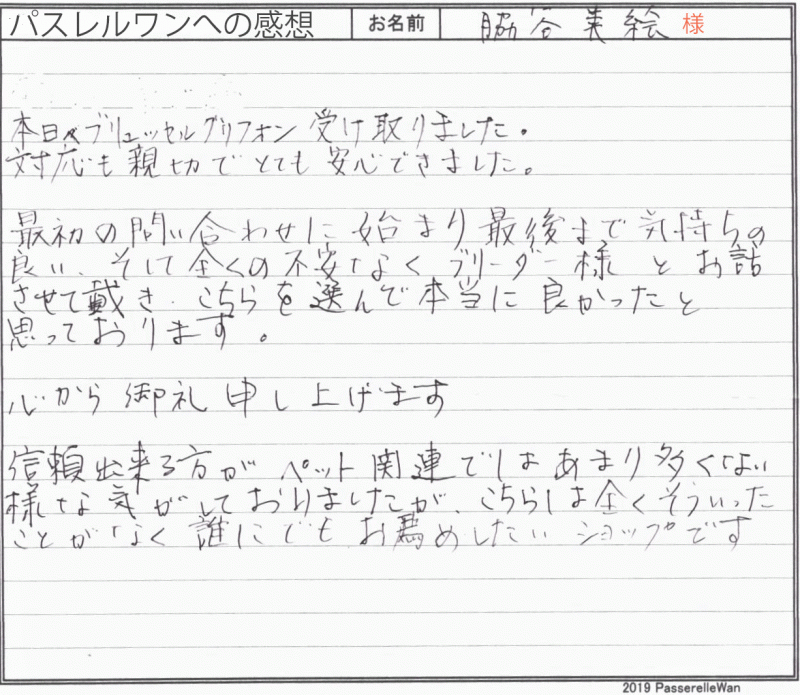 パスレルワンへの感想 お名前 脇谷美絵 様
本日、ブリュッセルグリフォン受け取りました。
対応も親切でとても安心できました。
最初の問い合わせに始まり最後まで気持ちの
良い、そして全くの不安なくブリーダー様とお話
させて戴き、こちらを選んで本当に良かったと
思っております。
心から御礼申し上げます
信頼出来る方がペット関連ではあまり多くない
様な気がしておりましたが、こちらは全くそういった
ことがなく誰にでもお薦めしたいショップです
2019 PasserelleWan